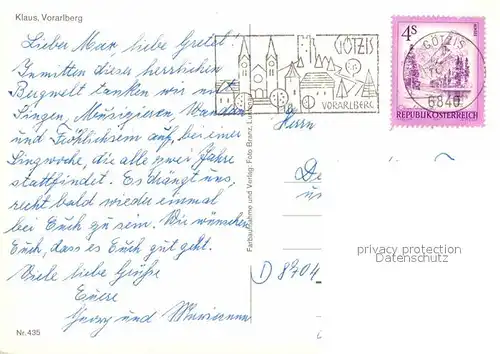 Klaus, Vorarlberg
Lieber Max, liebe Gretel!
Inmitten dieser herrlichen
Bergwelt tanken wir mit
Singen, Musizieren, Wandern
und Fröhlichsein auf, bei einer
Singwoche, die alle zwei Jahre
stattfindet. Es drängt uns,
recht bald wieder einmal
bei Euch zu sein. Wir wünschen
Euch, dass es Euch gut geht.
Viele liebe Grüße
Euere
und
Nr. 435
Farbaufnahme und Verlag: Foto Branz,
GÖTZIS
VORARLBERG
4S
REPUBLIK ÖSTERREICH
GÖTZIS
6840
Herrn
D 8704
privacy protection
Datenschutz